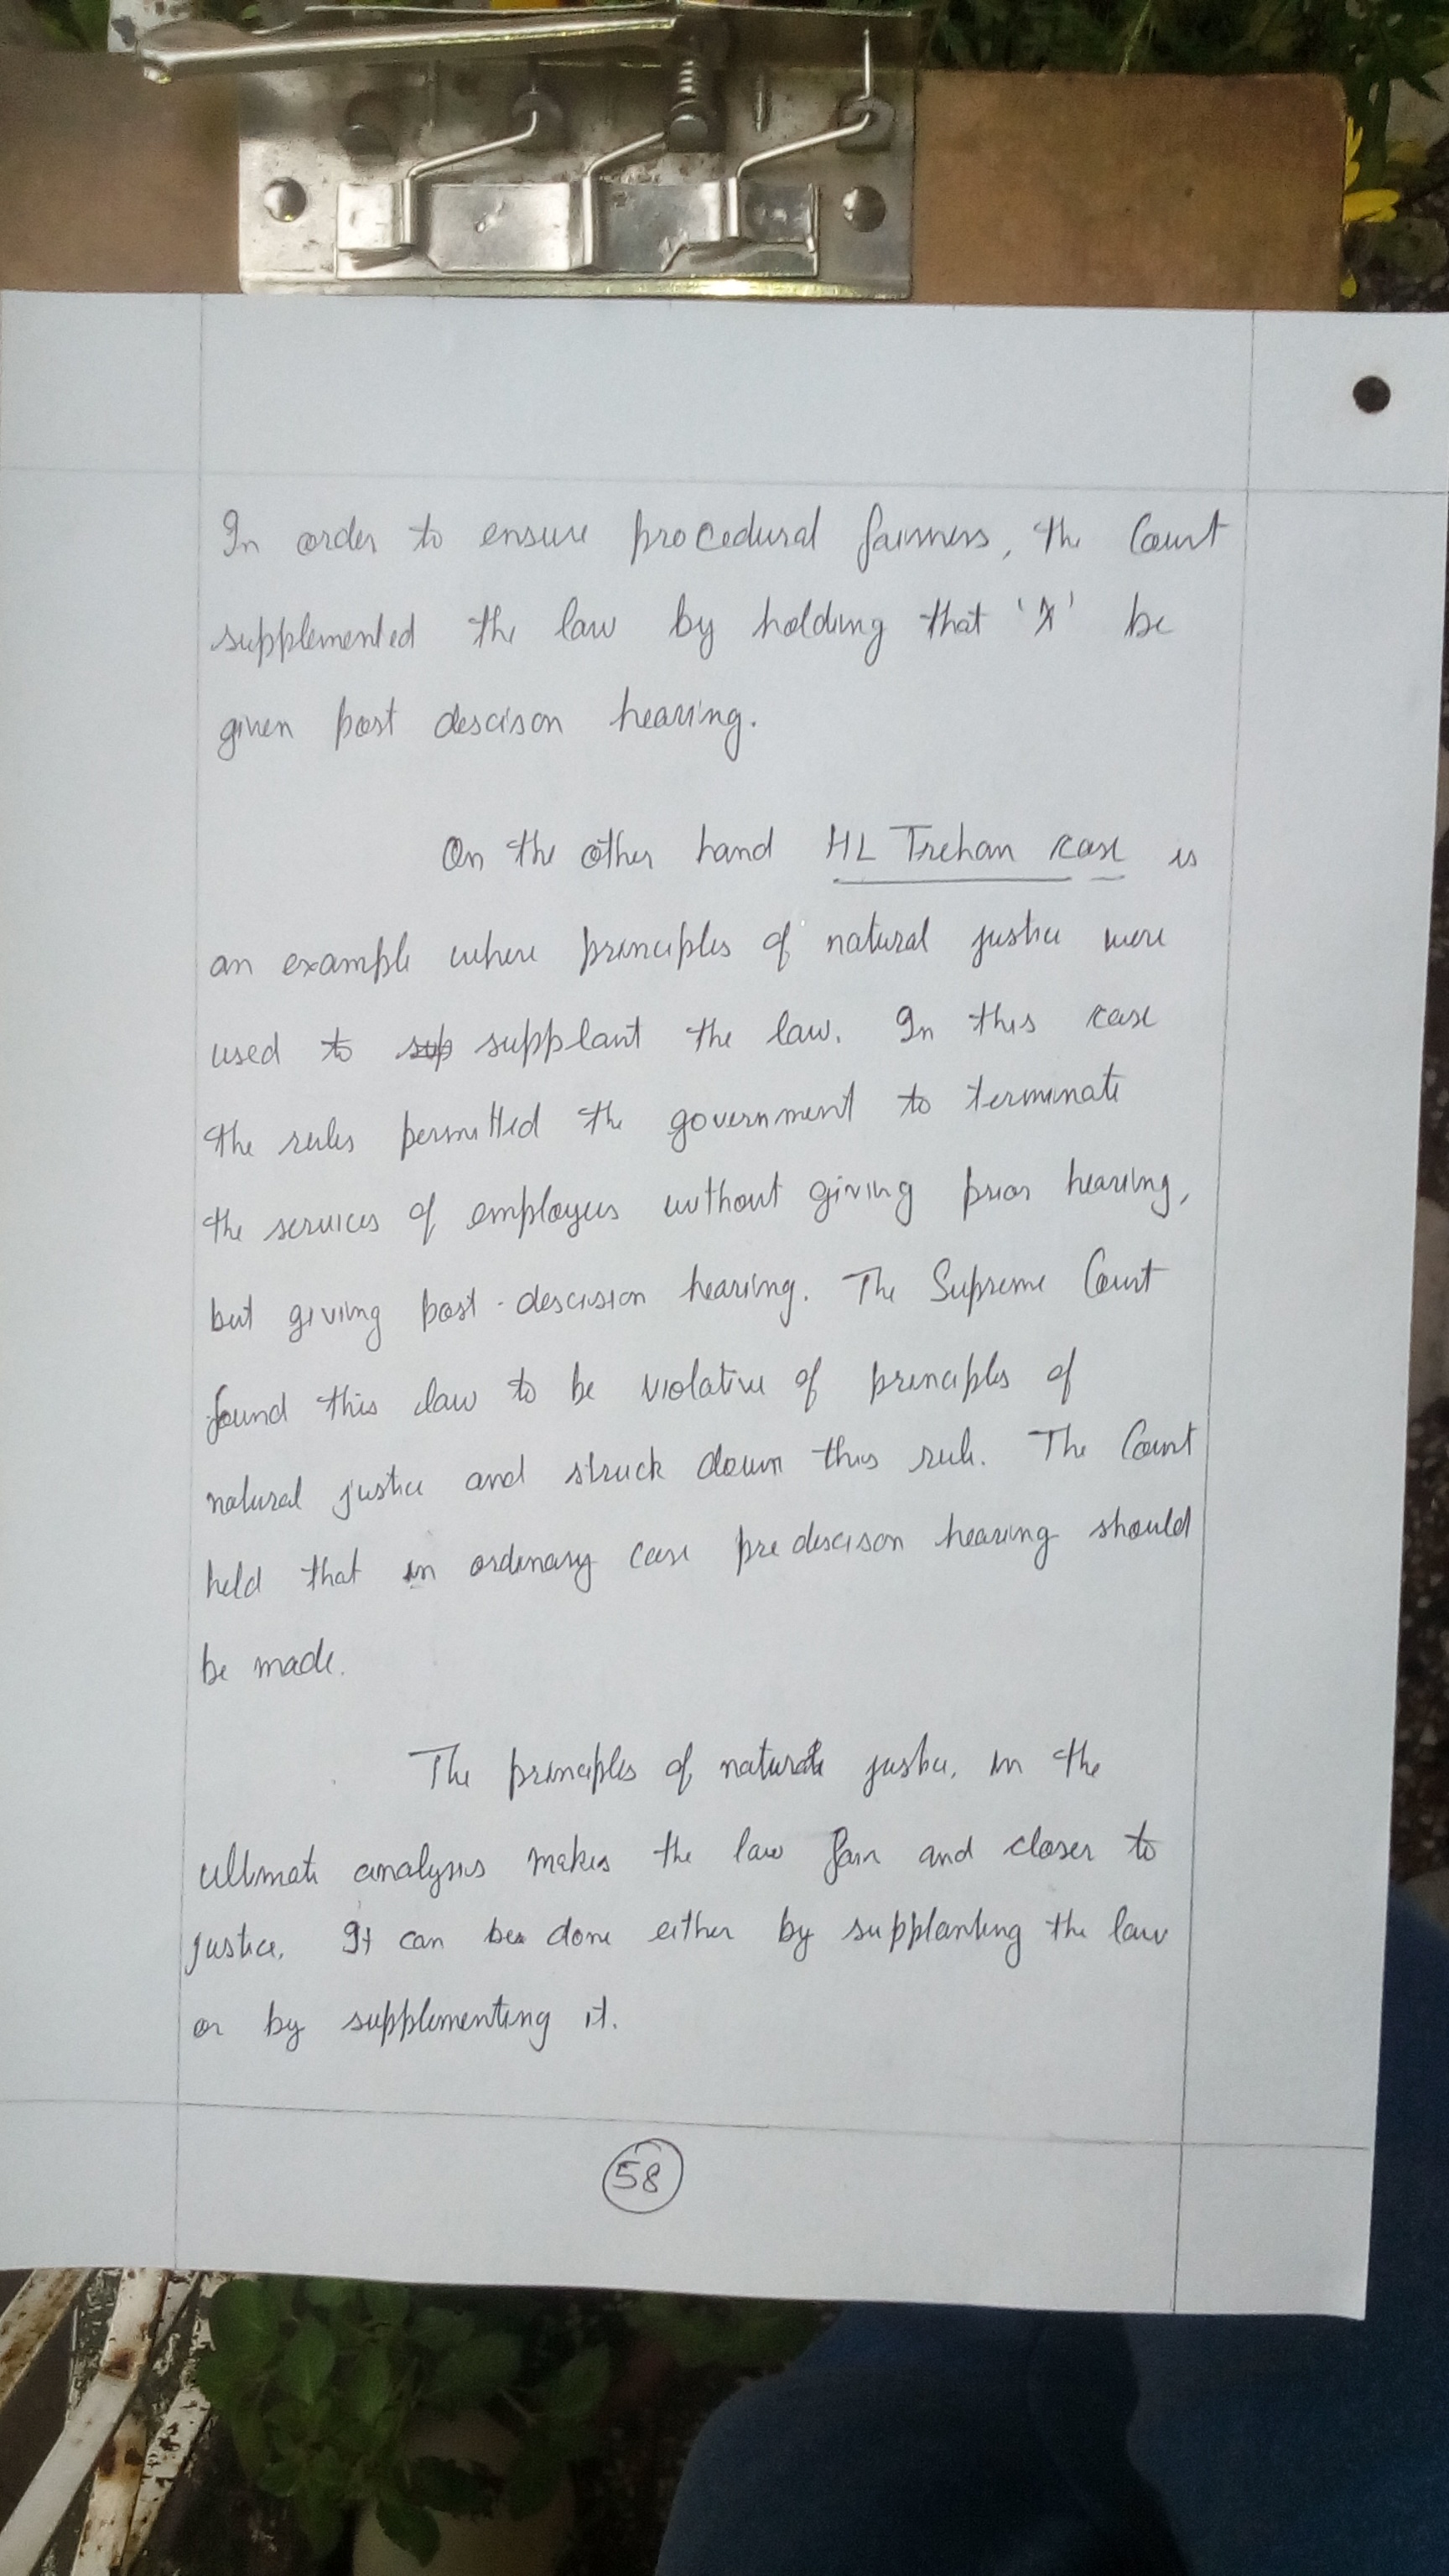 In order to ensure procedural fairness, the Court
supplemented the law by holding that 'X' be
given post descison hearing.
On the other hand HL Trehan case is
an example where principles of natural justice were
used to sup supplant the law. In this case
the rules permitted the government to terminate
the services of employees without giving prior hearing,
but giving post-descision hearing. The Supreme Court
found this law to be violative of principles of
natural justice and struck down this rule. The Court
held that in ordinary case pre descison hearing should
be made.
The principles of natural justice, in the
ultimate analysis makes the law fair and closer to
justice. It can be done either by supplanting the law
or by supplementing it.
58